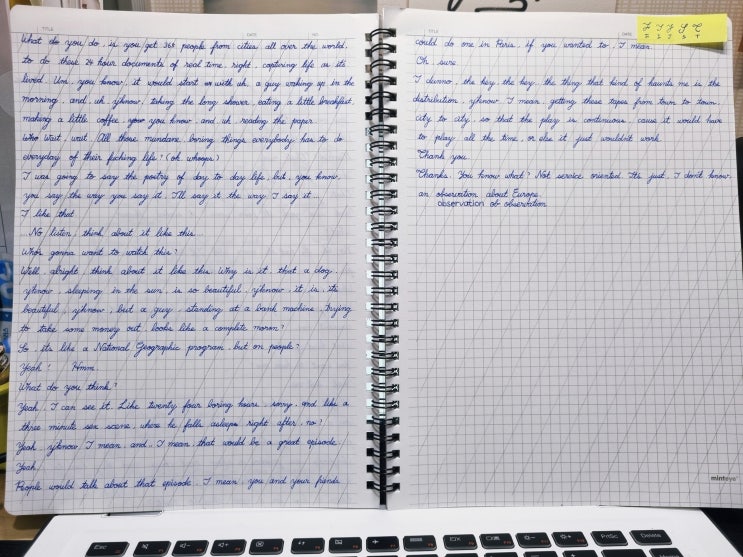 TITLE
DATE
NO
What do you do, is you get 365 people from cities all over the world,
to do these 24 hour documents of real time, right, capturing life as its
lived. Um, you know, it would start with uh, a guy waking up in the
morning, and, uh, y'know, taking the long shower, eating a little breakfast,
making a little coffee you know and, uh, reading the paper.
Who Wait, wait. All those mundane, boring things everybody has to do
everyday of their fucking life? (oh whoops)
I was going to say the poetry of day to day life, but, you know,
you say the way you say it, I'll say it the way I say it...
I like that
...No listen, think about it like this...
Who's gonna want to watch this?
Well, alright, think about it like this. Why is it, that a dog,
y'know, sleeping in the sun, is so beautiful, y'know, it is, its
beautiful, y'know, but a guy, standing at a bank machine, trying
to take some money out, looks like a complete moron?
So, its like a National Geographic program, but on people?
Yeah! Hmm.
What do you think?
Yeah, I can see it. Like twenty four boring hours, sorry, and like a
three minute sex scene, where he falls asleep right after, no?
Yeah, y'know I mean, and, I mean, that would be a great episode.
Yeah
People would talk about that episode. I mean, you and your friends
TITLE
DATE
could do one in Paris, if you wanted to, I mean.
Oh, sure
I dunno, the key, the key, the thing that kind of haunts me is the
distribution, y'know I mean, getting these tapes from town to town,
city to city, so that the play is continuous, cause it would have
to play all the time, or else it just wouldn't work.
Thank you.
Thanks. You know what? Not service oriented. Its just, I don't know,
an observation about Europe.
observation ob observation
I I J S T
minteye
Esc F1 F2 F3 F4 F5 F6 F7 F8 F9 F10 PrtSc Delete